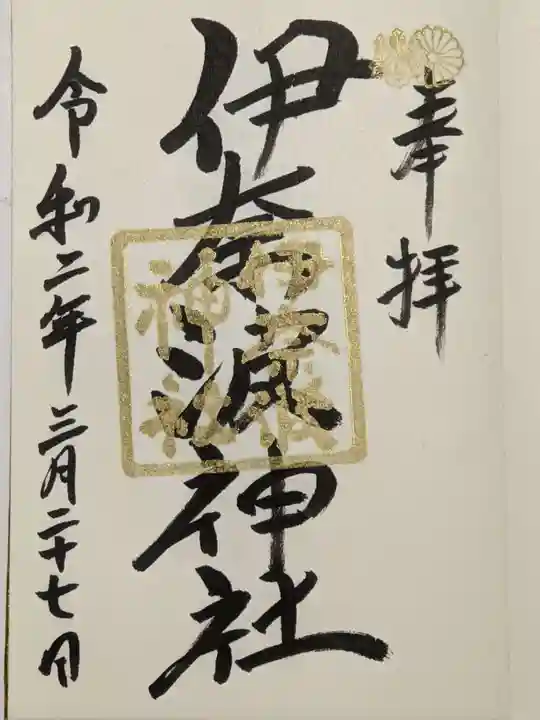 奉拝
伊奈波神社
伊奈波
神社
令和二年三月二十七日